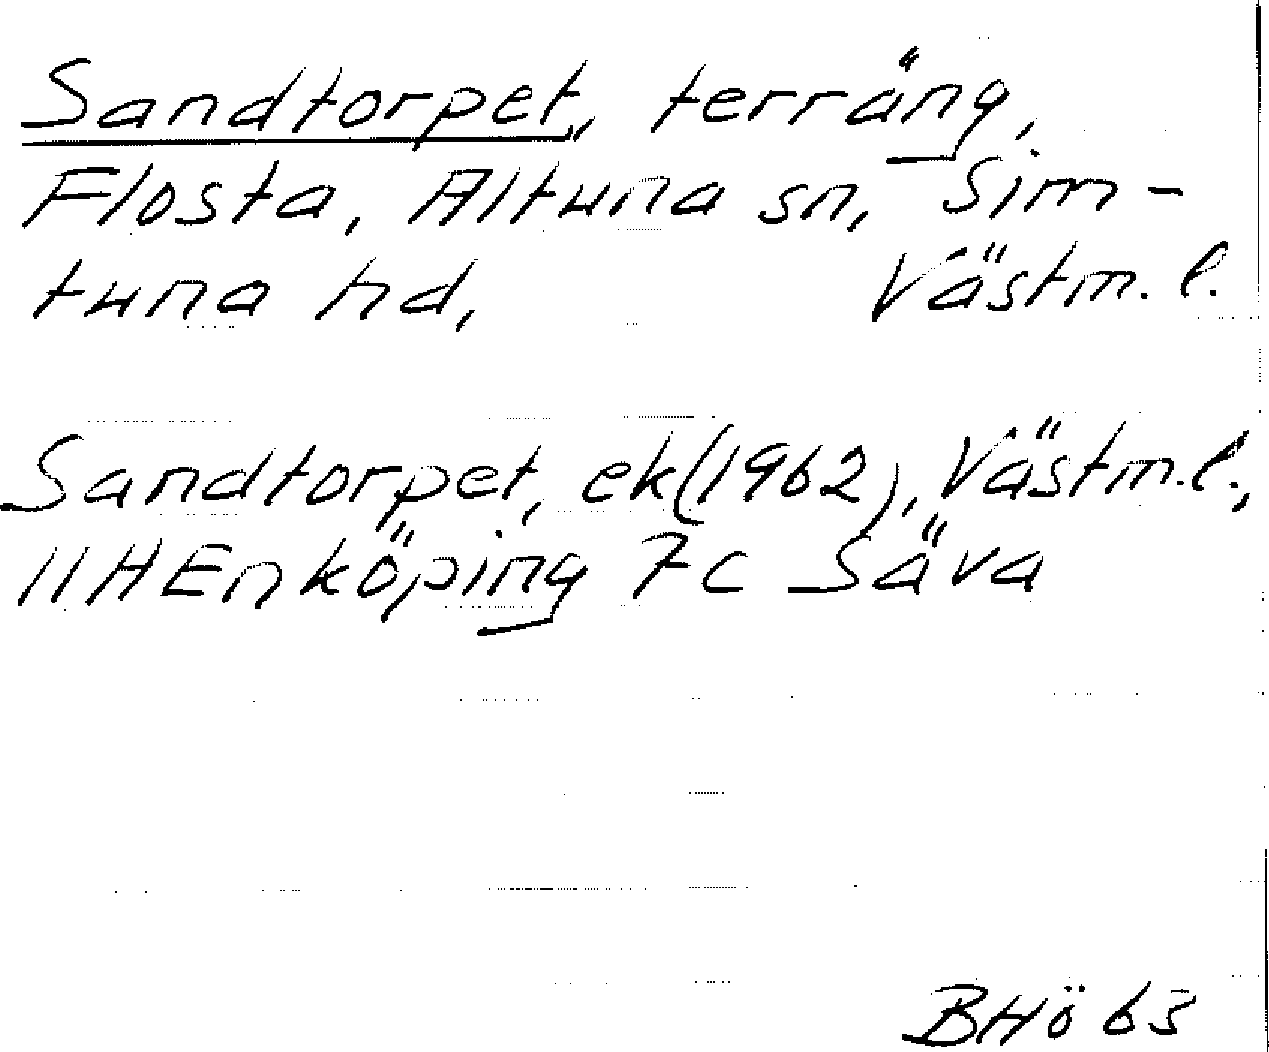 Sandtorpet, terräng,
Flosta, Altuna sn, Sim-
tuna hd, Västm. l.
Sandtorpet, ek (1962), Västm. l.,
11H Enköping 7c Säva
BHö 63